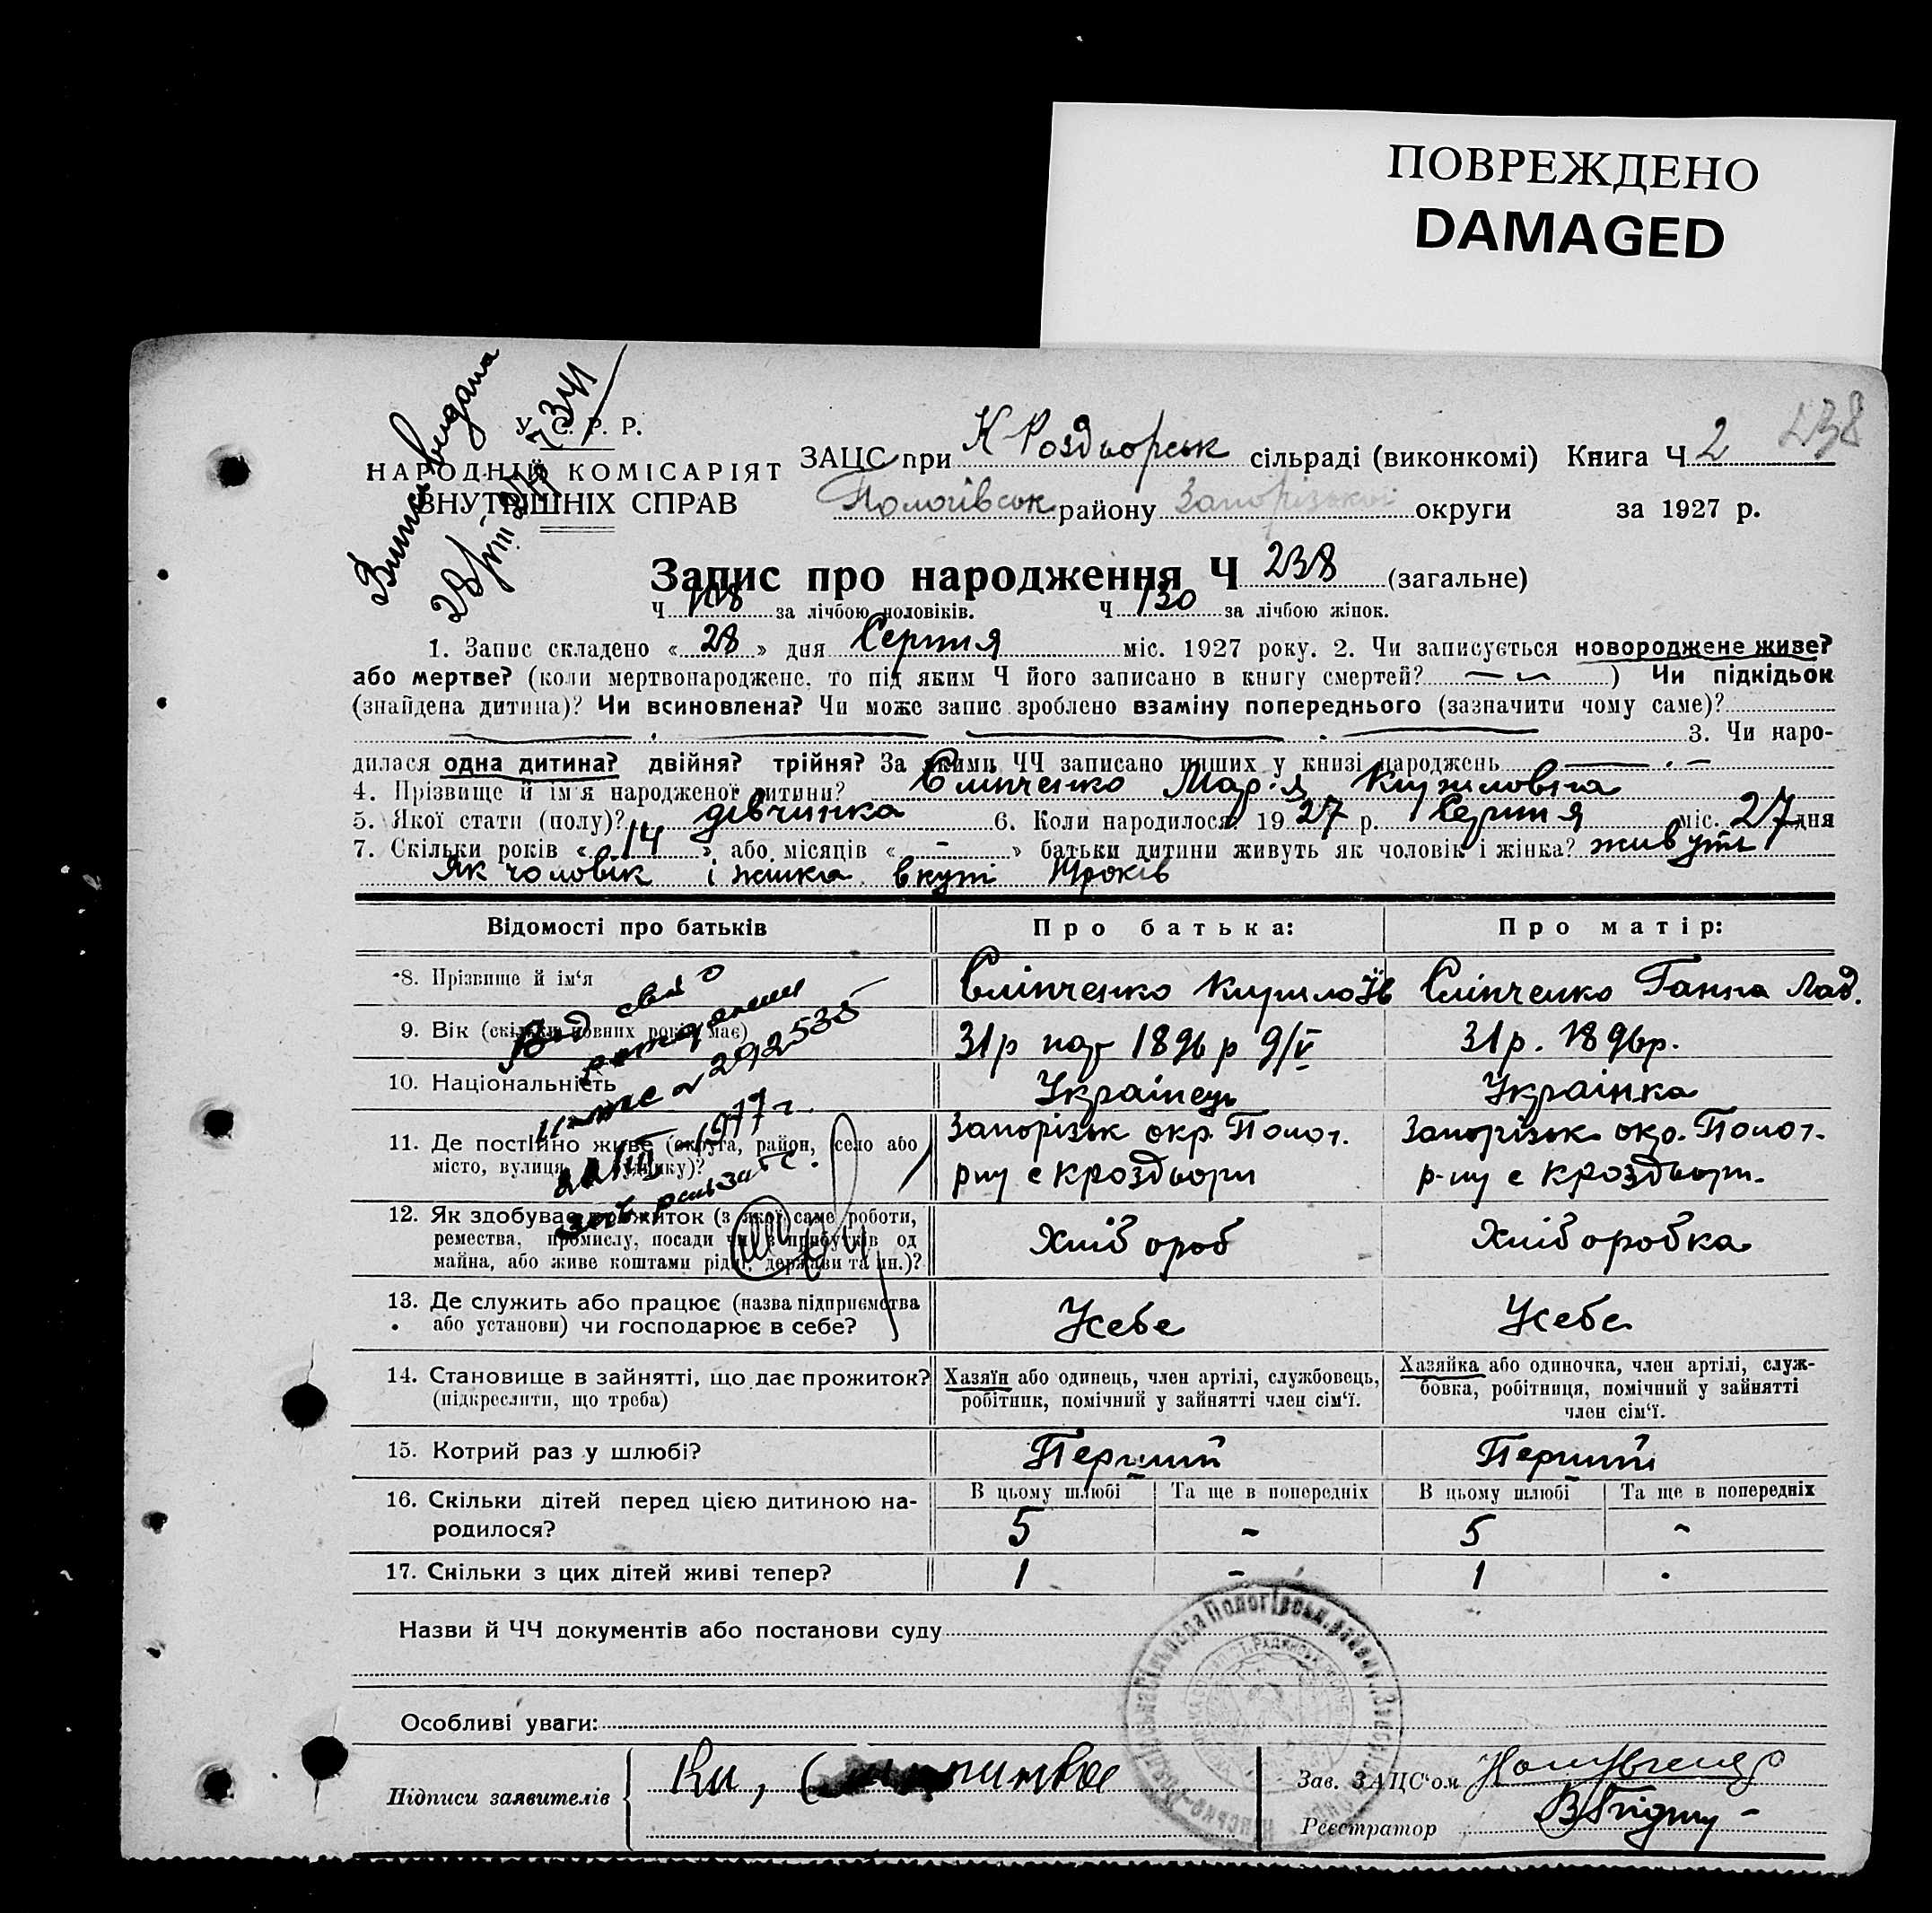 ПОВРЕЖДЕНО
DAMAGED
238
Витяг видана
28/VIII
У. С. Р. Р.
НАРОДНІЙ КОМІСАРІЯТ
ВНУТРІШНІХ СПРАВ
ЗАЦС при К Роздьорськ сільраді (виконкомі) Книга Ч 2
Пологівськ району Запорізької округи за 1927 р.
Запис про народження Ч 238 (загальне)
Ч 108 за лічбою чоловіків. Ч 130 за лічбою жінок.
1. Запис складено « 28 » дня Серпня міс. 1927 року. 2. Чи записується новороджене живе?
або мертве? (коли мертвонароджене, то під яким Ч його записано в книгу смертей? ) Чи підкідьок
(знайдена дитина)? Чи всиновлена? Чи може запис зроблено взаміну попереднього (зазначити чому саме)?
3. Чи наро-
дилася одна дитина? двійня? трійня? За якими ЧЧ записано инших у книзі народжень
4. Прізвище й ім'я народженої дитини? Сліпченко Марія Кириловна
5. Якої стати (полу)? дівчинка 6. Коли народилося? 1927 р. Серпня міс. 27 дня
7. Скільки років « 14 » або місяців « - » батьки дитини живуть як чоловік і жінка? живуть
Як чоловік і жинка вкупі 14років
Відомості про батьків Про батька: Про матір:
8. Прізвище й ім'я Сліпченко Кирило Ів Сліпченко Ганна Лад.
9. Вік (скільки повних років має) 31р 1896 р 9/V 31р. 1896р.
10. Національність Українець Українка
11. Де постійно живе (округа, район, село або Запорізьк окр. Полог. Запорізьк окр. Полог.
місто, вулиця, будинку)? р-ну с Кроздьори р-ну с Кроздьори.
12. Як здобуває прожиток (з якої саме роботи,
ремества, промислу, посади чи з прибутків од
майна, або живе коштами рідні, держави та ин.)? Хліб ороб Хліб оробка
13. Де служить або працює (назва підприємства
або установи) чи господарює в себе? Усебе Усебе
14. Становище в зайнятті, що дає прожиток?
(підкреслити, що треба)
Хазяїн або одинець, член артілі, службовець,
робітник, помічний у зайнятті член сім'ї.
Хазяйка або одиночка, член артілі, служ-
бовка, робітниця, помічний у зайнятті
член сім'ї.
15. Котрий раз у шлюбі? Перший Перший
16. Скільки дітей перед цією дитиною на-
родилося?
В цьому шлюбі Та ще в попередніх В цьому шлюбі Та ще в попередніх
5 - 5 -
17. Скільки з цих дітей живі тепер? 1 - 1 -
Выд св о
рождении
292535
1977 г.
Назви й ЧЧ документів або постанови суду
Особливі уваги:
Підписи заявителів
Зав. ЗАЦС'ом
Реєстратор